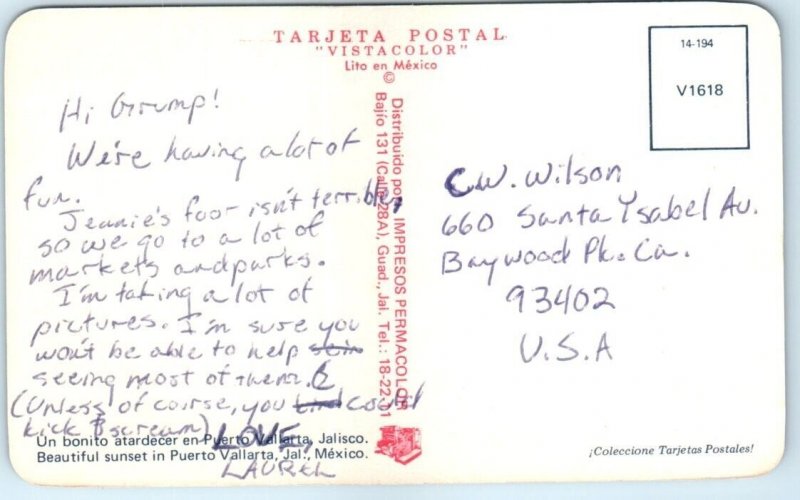 TARJETA POSTAL
"VISTACOLOR"
Lito en México
©
14-194
V1618
Hi Grump!
We're having a lot of
fun.
Jeannie's foot isn't terrible,
so we go to a lot of
markets and parks.
I'm taking a lot of
pictures. I'm sure you
won't be able to help
seeing most of them.
(Unless of course, you could
kick & scream)
LOVE,
LAUREL
Distribuido por IMPRESOS PERMACOLOR
Bajío 131 (Calle 28A), Guad., Jal. Tel.: 18-22-01
C.W. Wilson
660 Santa Ysabel Av.
Baywood Pk. Ca.
93402
U.S.A
Un bonito atardecer en Puerto Vallarta, Jalisco.
Beautiful sunset in Puerto Vallarta, Jal., México.
¡Coleccione Tarjetas Postales!